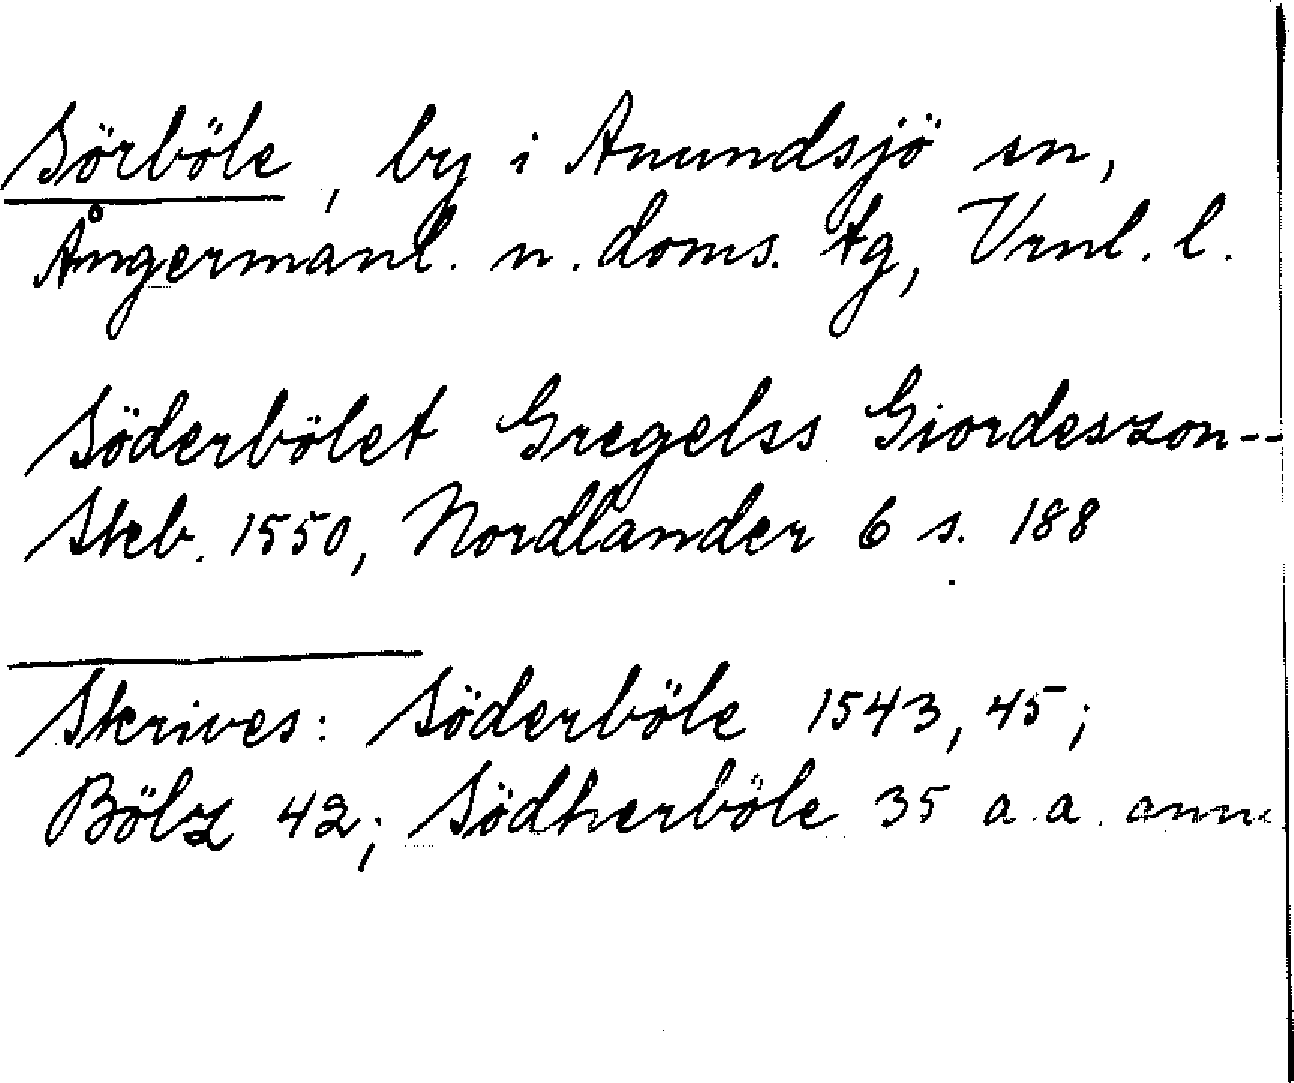 Sörböle, by i Anundsjö sn,
Ångermanl. n. doms. tg, Vrnl. l.
Söderbölet Gregelss Giordeszon--
Skb. 1550, Nordlander 6 s. 188
Skrives: Söderböle 1543, 45;
Bölz 42; Södherböle 35 a.a.